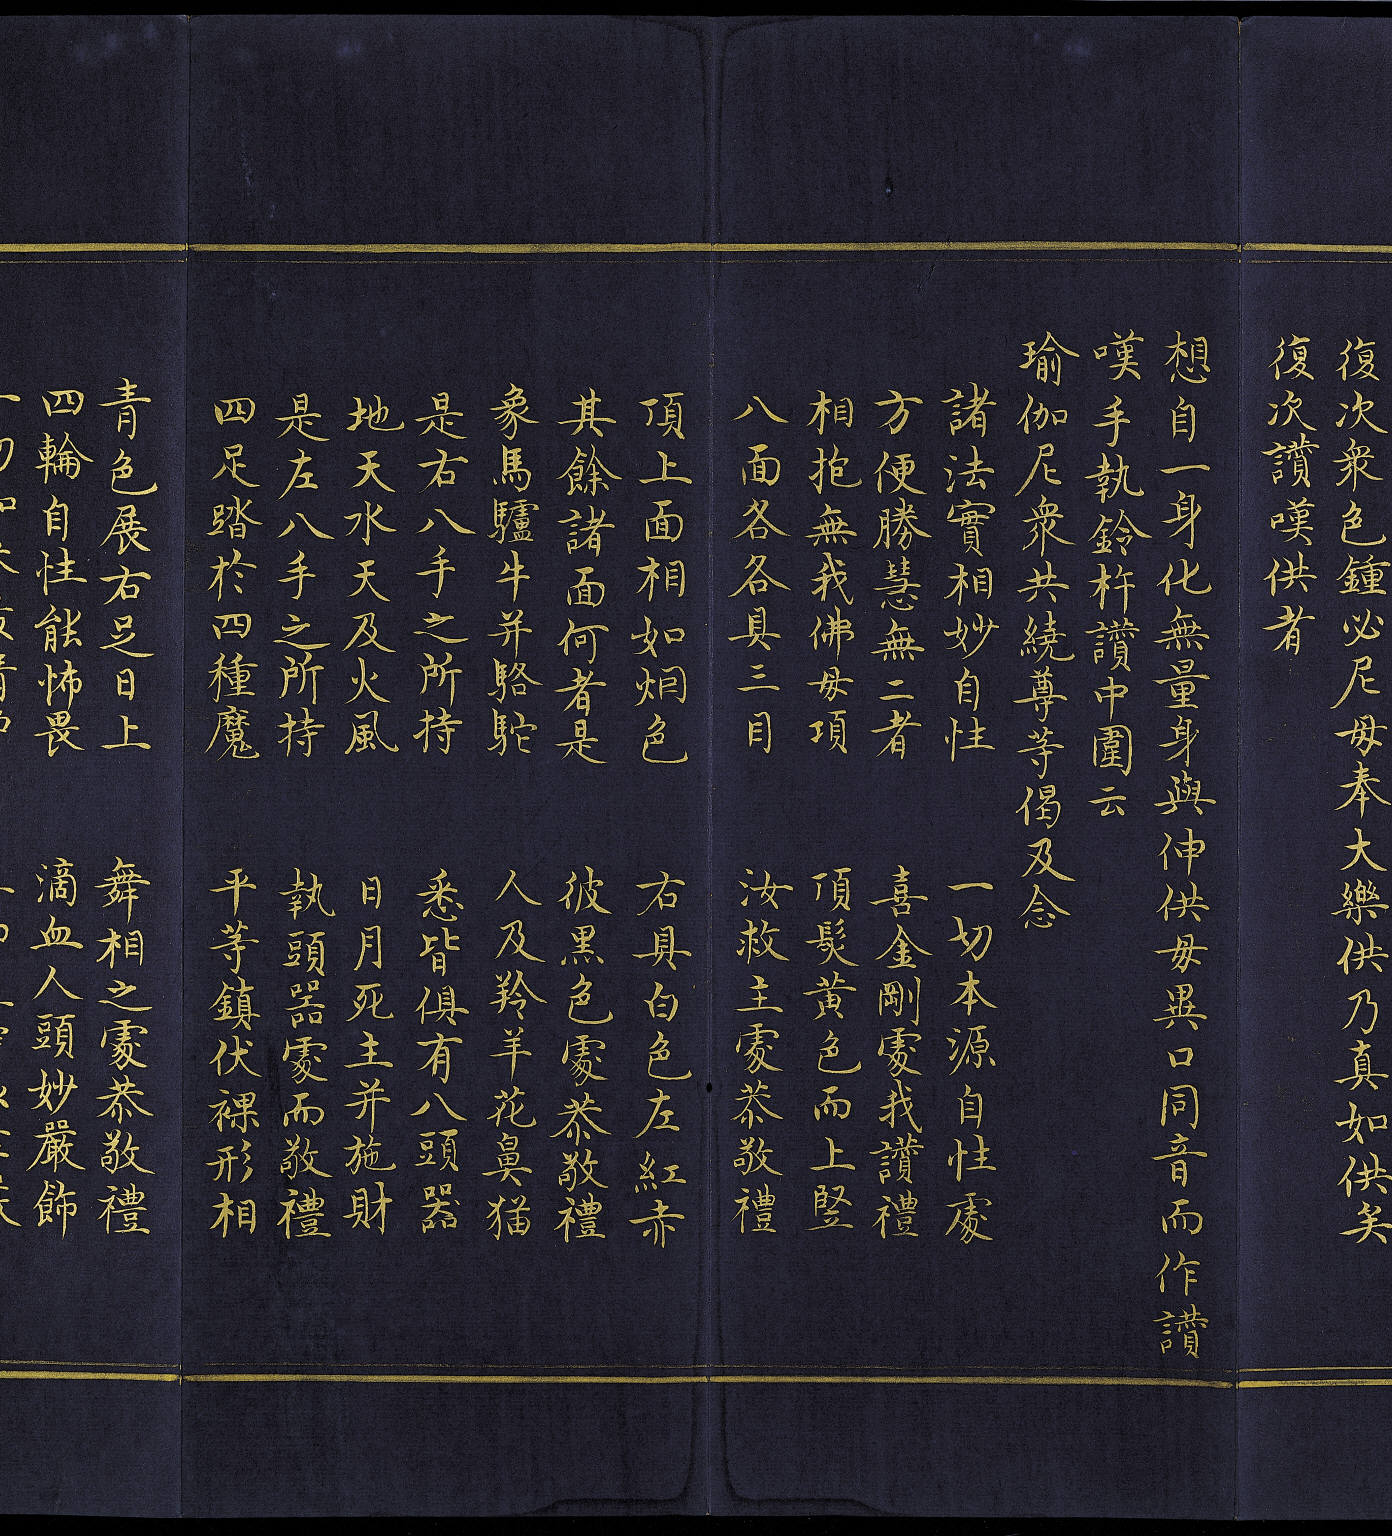 復次衆色鍾必尼毋奉大樂供乃真如供矣
復次讚嘆供者
想自一身化無量身與伸供毋異口同音而作讚
嘆手執鈴杵讚中圍云
瑜伽尼衆共繞尊等偈及念
諸法實相妙自性　一切本源自性處
方便勝慧無二者　喜金剛處我讚禮
相抱無我佛毋項　頂髮黄色而上竪
八面各各具三目　汝救主處恭敬禮
頂上面相如烟色　右具白色左紅赤
其餘諸面何者是　彼黑色處恭敬禮
象馬驢牛并駱駝　人及羚羊花鼻猫
是右八手之所持　悉皆俱有八頭器
地天水天及火風　日月死主并施財
是左八手之所持　執頭器處而敬禮
四足踏於四種魔　平等鎮伏裸形相
青色展右足日上　舞相之處恭敬禮
四輪自性能怖畏　滴血人頭妙嚴飾